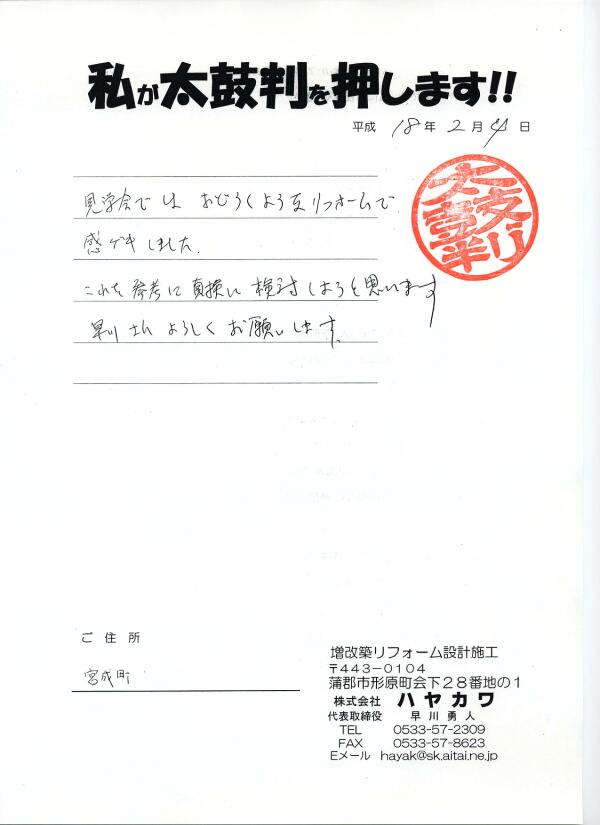 私が太鼓判を押します!!
平成 18年 2月 4日
太鼓判
見学会では おどろくようなリフォームで
感ゲキしました.
これを参考に真摸に検討しようと思います
早川さん よろしくお願いします.
ご住所
宮成町
増改築リフォーム設計施工
〒443-0104
蒲郡市形原町会下28番地の1
株式会社 ハヤカワ
代表取締役 早川勇人
TEL 0533-57-2309
FAX 0533-57-8623
Eメール hayak@sk.aitai.ne.jp